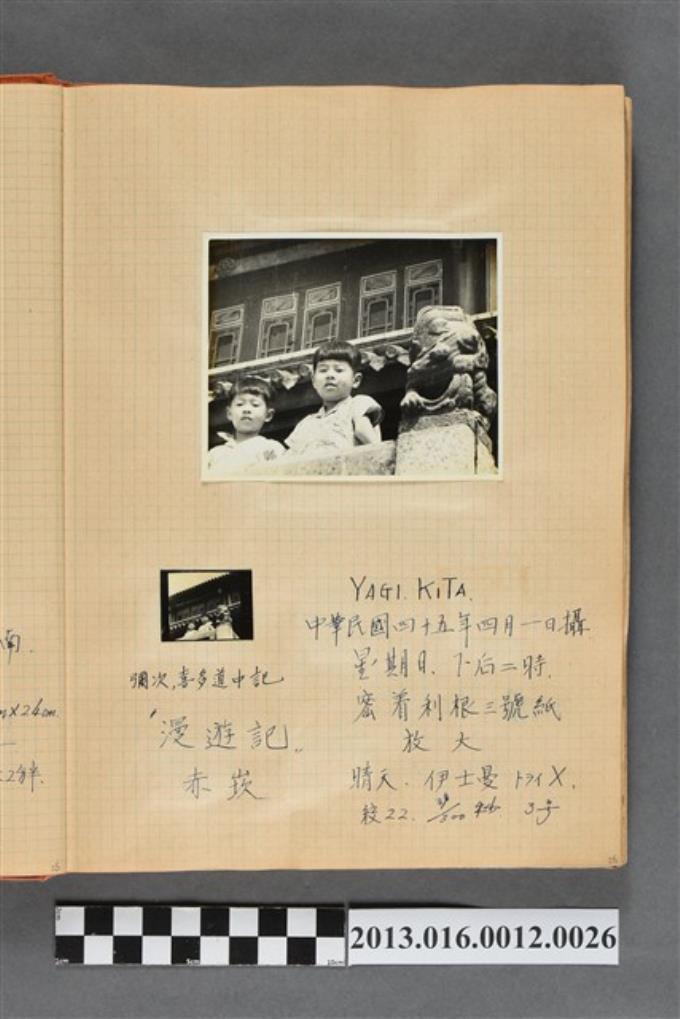 南.
×24cm.
2分半.
YAGI. KITA.
中華民國四十五年四月一日攝
星期日. 下后二時.
密着利根三號紙
放大
晴天. 伊士曼 トライX.
絞22. 1/200 3号
彌次,喜多道中記
"漫遊記"
赤崁
26
2cm
5cm
10cm
2013.016.0012.0026